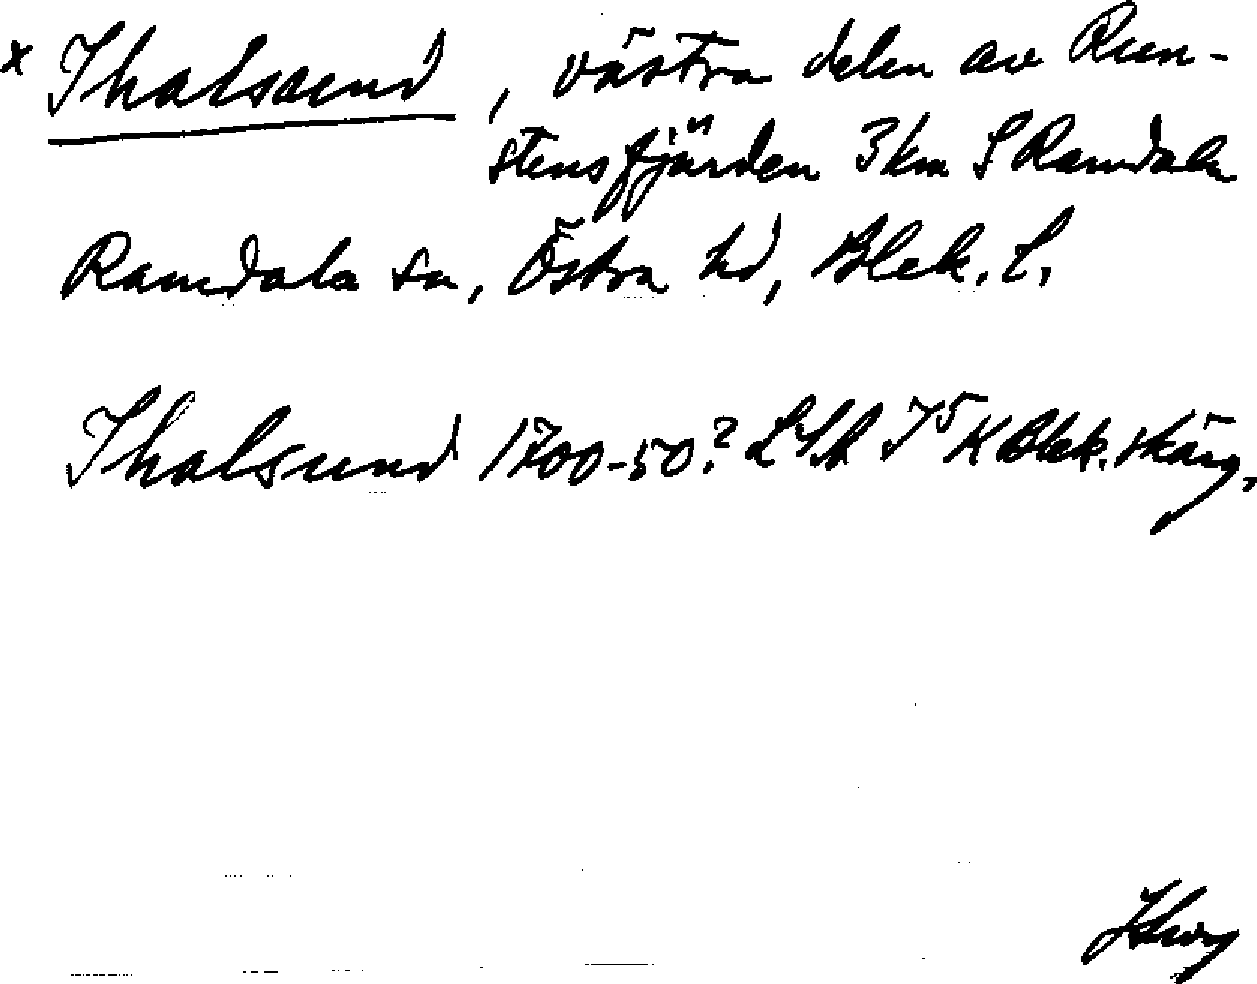 x Thalsund, västra delen av Run-
stensfjärden 3 km S Ramdala
Ramdala sn, Östra hd, Blek. l.
Thalsund 1700-50? LSA J⁵ K Blek. skärg.